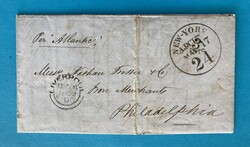 Per "Atlantic"
NEW-YORK
24
LIVERPOOL
Messrs Nathan Trotter & Co
Iron Merchants
Philadelphia